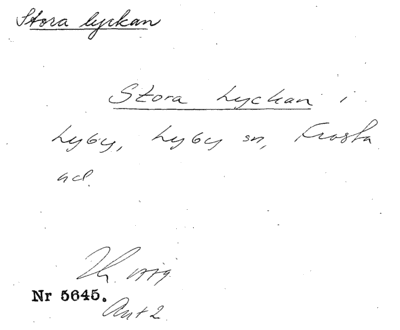 Stora lyckan
Stora Lyckan i
Lyby, Lyby sn, Frosta
hd.
Nr 5645.
Ant 2